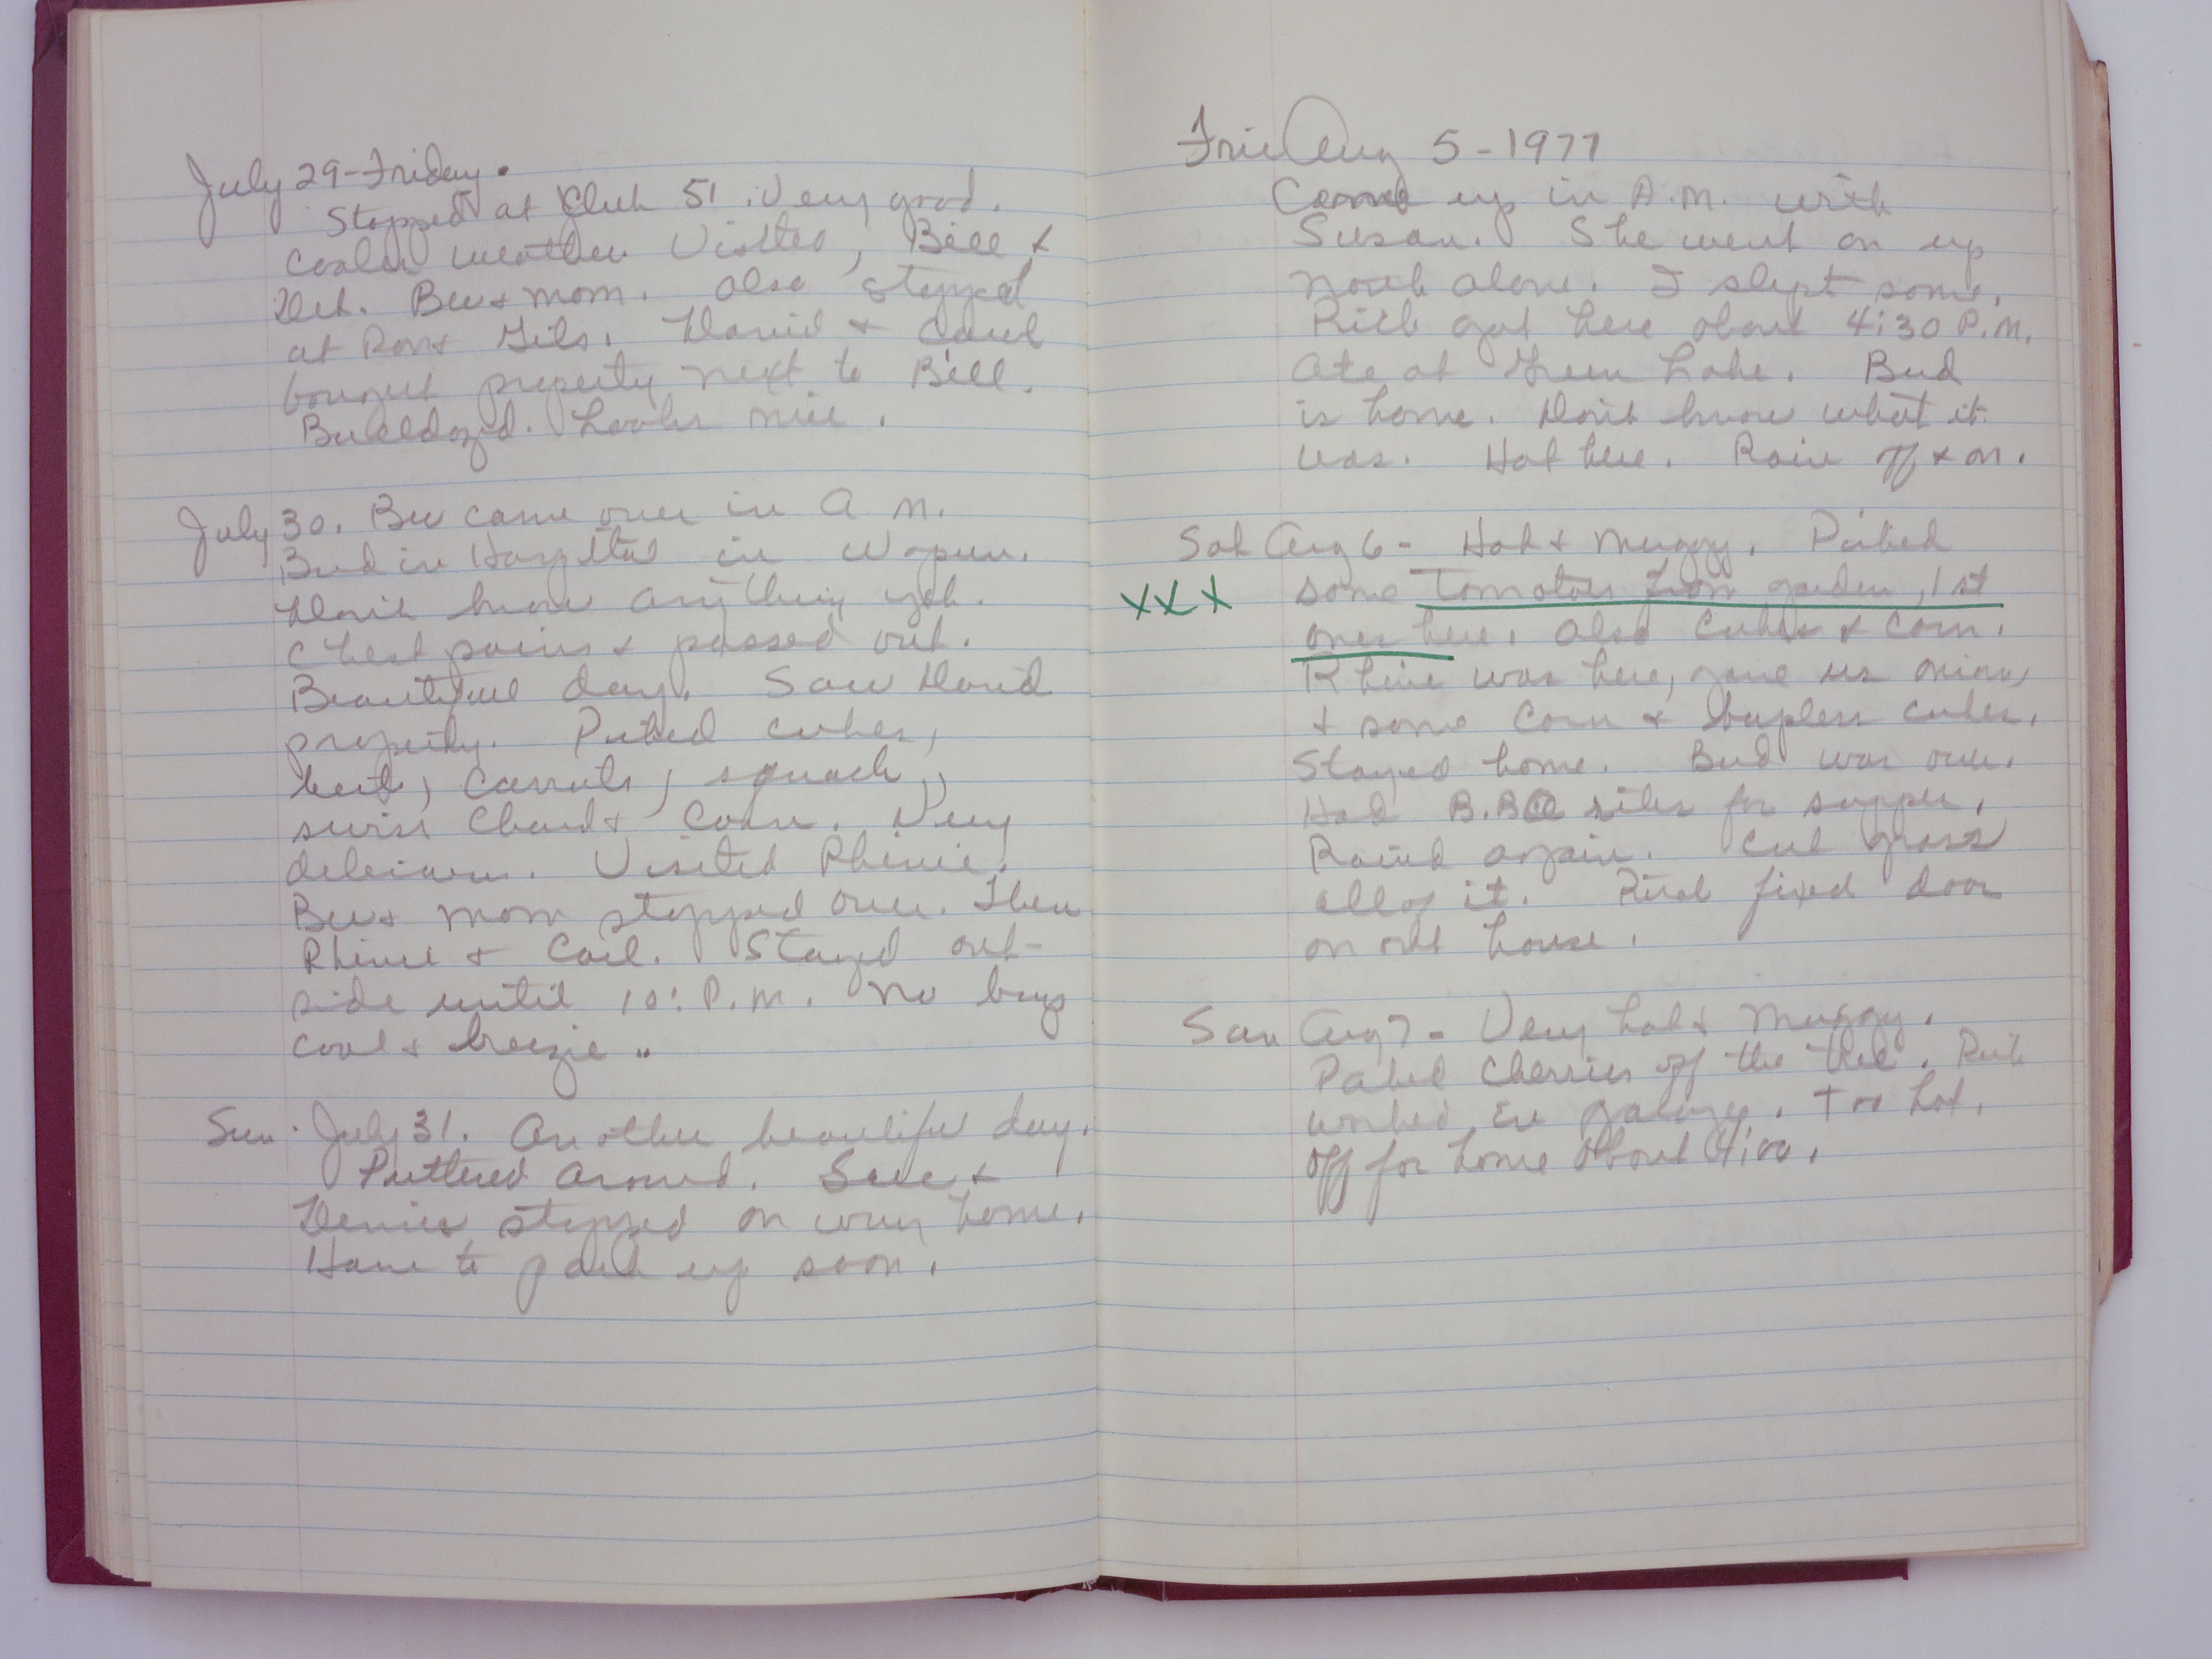 July 29-Friday.
Stopped at Club 51. Very good.
Cooler weather Visited, Bill &
Deb. Bev & mom. Also stopped
at Ron & Gils. David & Carol
bought property next to Bill.
Bulldozed. Looks nice.
July 30. Bev came over in A.M.
Bud in Hospital in Waupun.
Don't know anything yet.
Chest pains & passed out.
Beautiful day. Saw David
property. Picked cukes,
beets, Carrots, squash,
swiss Chard & Corn. Very
delicious. Visited Rhinie.
Bev & mom stopped over. Then
Rhinie & Carl. Stayed out-
side until 10: P.M. No bugs
cool & breezie..
Sun. July 31. Another beautiful day.
Puttered around. Sue &
Denise stopped on way home.
Have to pack up soon.
Fri Aug 5-1977
Came up in A.M. with
Susan. She went on up
north alone. I slept some.
Rich got here about 4:30 P.M.
Ate at Green Lake. Bud
is home. Don't know what it
was. Hot here. Rain off & on.
Sat Aug 6- Hot & Muggy. Picked
XXX some tomatoes from garden, 1st
ones here. Also Cukes & Corn.
Rhinie was here, gave us onions
& some Corn & burpless cukes.
Stayed home. Bud was over.
Had B.BQ ribs for supper.
Rained again. Cut grass
all of it. Rich fixed door
on out house.
Sun Aug 7- Very hot & Muggy.
Picked Cherries off the tree. Rich
worked in garage. Too hot.
Off for home about 4:00.